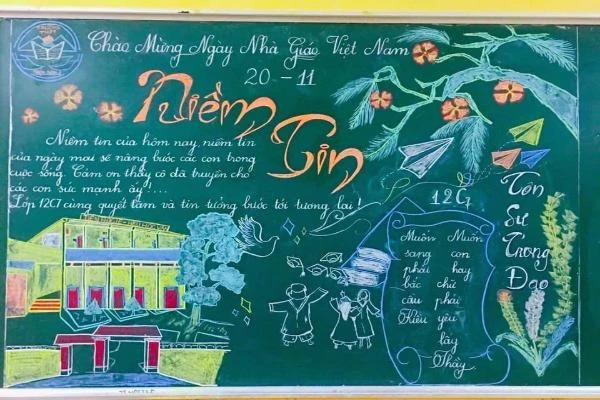 Chào Mừng Ngày Nhà Giáo Việt Nam
20 - 11
Niềm
Tin
Niềm tin của hôm nay, niềm tin
của ngày mai sẽ nâng bước các con trong
cuộc sống. Cảm ơn thầy cô đã truyền cho
các con sức mạnh ấy!...
Lớp 12C7 cùng quyết tâm và tin tưởng bước tới tương lai!
12C7
Muốn Muốn
sang con
phải hay
bắc chữ
cầu phải
Kiều yêu
lấy
Thầy
Tôn
Sư
Trọng
Đạo